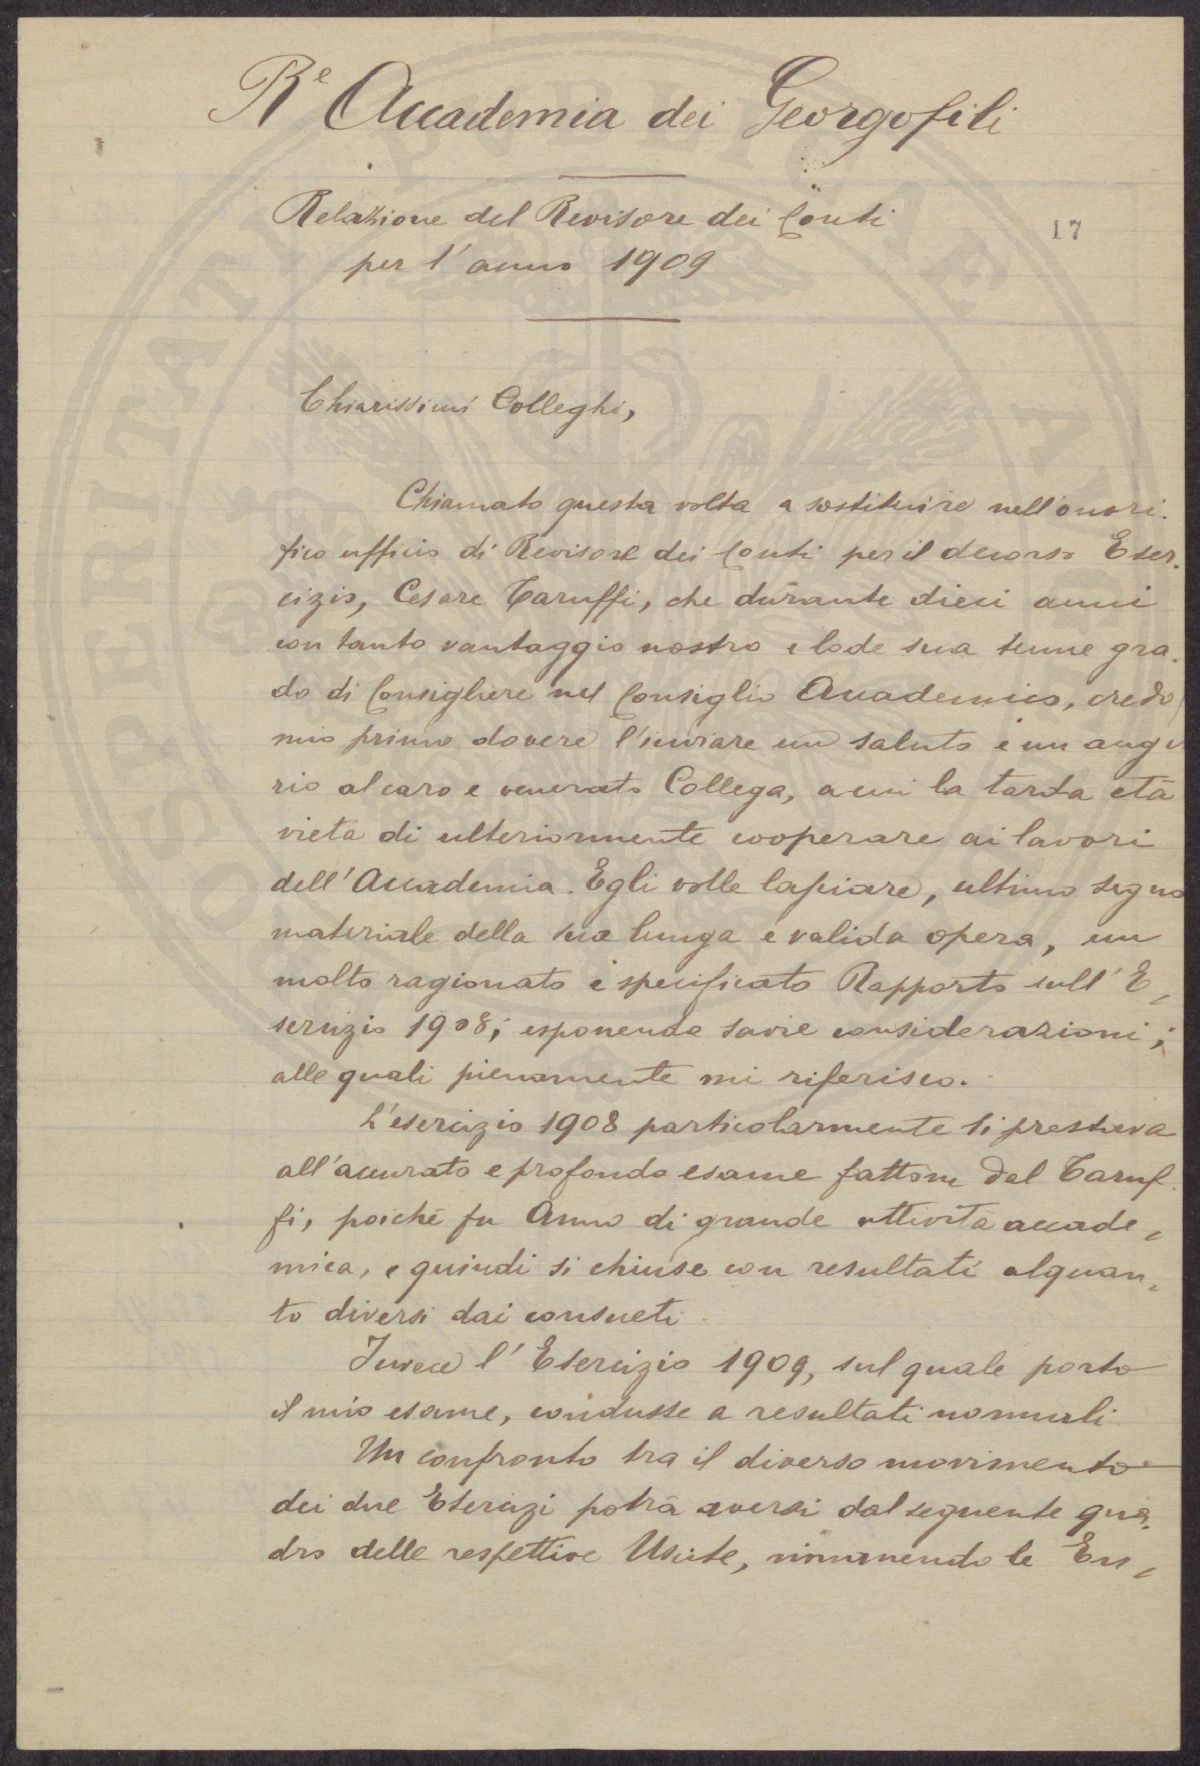 Rᵉ Accademia dei Georgofili
Relazione del Revisore dei Conti
17
per l'anno 1909
Chiarissimi Colleghi,
Chiamato questa volta a sostituire nell'onori-
fico ufficio di Revisore dei Conti per il decorso Eser-
cizio, Cesare Taruffi, che durante dieci anni
con tanto vantaggio nostro e lode sua tenne gra-
do di Consigliere nel Consiglio Accademico, credo
mio primo dovere l'inviare un saluto e un augu
rio al caro e venerato Collega, a cui la tarda età
vieta di ulteriormente cooperare ai lavori
dell'Accademia. Egli volle lasciare, ultimo segno
materiale della sua lunga e valida opera, un
molto ragionato e specificato Rapporto sull'E-
sercizio 1908; esponendo savie considerazioni;
alle quali pienamente mi riferisco.
L'esercizio 1908 particolarmente si prestava
all'accurato e profondo esame fattone dal Taruf-
fi, poichè fu Anno di grande attività accade-
mica, e quindi si chiuse con resultati alquan-
to diversi dai consueti.
Invece l'Esercizio 1909, sul quale porto
il mio esame, condusse a resultati normali
Un confronto tra il diverso movimento
dei due Esercizi potrà aversi dal seguente qua-
dro delle respettive Uscite, rimanendo le En-
PROSPERITATI PUBLICAE AU